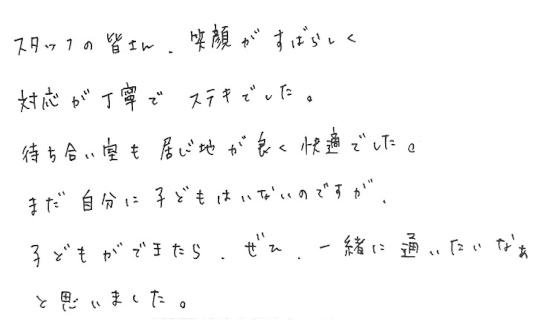 スタッフの皆さん、笑顔がすばらしく
対応が丁寧で ステキでした。
待ち合い室も居心地が良く快適でした。
まだ自分に子どもはいないのですが、
子どもができたら、ぜひ、一緒に通いたいなぁ
と思いました。